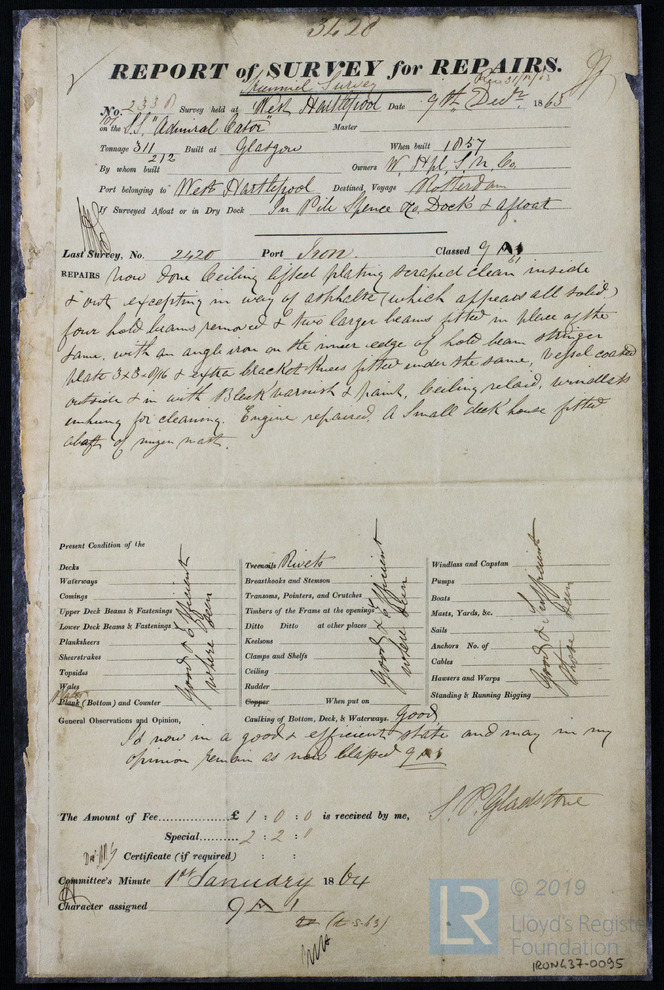 3428
REPORT of SURVEY for REPAIRS.
Survey
No. 2330 Survey held at West Hartlepool Date 9th Decr. 1863
on the S.S. "Admiral Cator" Master
Tonnage 311 Built at Glasgow When built 1857
212
By whom built Owners W. Hpl. S. N. Co.
Port belonging to West Hartlepool Destined Voyage Rotterdam
If Surveyed Afloat or in Dry Dock In Pile Spence & Co. Dock & afloat
Last Survey, No. 2420 Port Iron. Classed 9 A1
REPAIRS now done Ceiling lifted plating scraped clean inside
& out excepting in way of asphalte (which appears all solid)
four hold beams removed & two larger beams fitted in place of the
same, with an angle iron on the inner edge of hold beam stringer
plate 3x3-6/16 & extra bracket knees fitted under the same, Vessel coated
outside & in with Black varnish & paint, Ceiling relaid, windlass
unhung for cleaning. Engine repaired, A Small deck house fitted
abaft of mizen mast.
Present Condition of the
Decks
Waterways
Comings
Upper Deck Beams & Fastenings
Lower Deck Beams & Fastenings
Planksheers
Sheerstrakes
Topsides
Wales
Plank (Bottom) and Counter
Good & Efficient
where seen
Treenails Rivets
Breasthooks and Stemson
Transoms, Pointers, and Crutches
Timbers of the Frame at the openings
Ditto Ditto at other places
Keelsons
Clamps and Shelfs
Ceiling
Rudder
Copper When put on
Caulking of Bottom, Deck, & Waterways. Good
Good & Efficient
where seen
Windlass and Capstan
Pumps
Boats
Masts, Yards, &c.
Sails
Anchors No. of
Cables
Hawsers and Warps
Standing & Running Rigging
Good & Sufficient
where seen
General Observations and Opinion,
Is now in a good & efficient state and may in my
opinion remain as now Classed 9 A1
The Amount of Fee £ 1 : 0 : 0 is received by me, S. P. Gladstone
Special 2 : 2 : 0
Certificate (if required) : :
Committee's Minute 1st January 1864
Character assigned 9 A 1
© 2019
LR
Lloyd's Register
Foundation
IRON437-0095